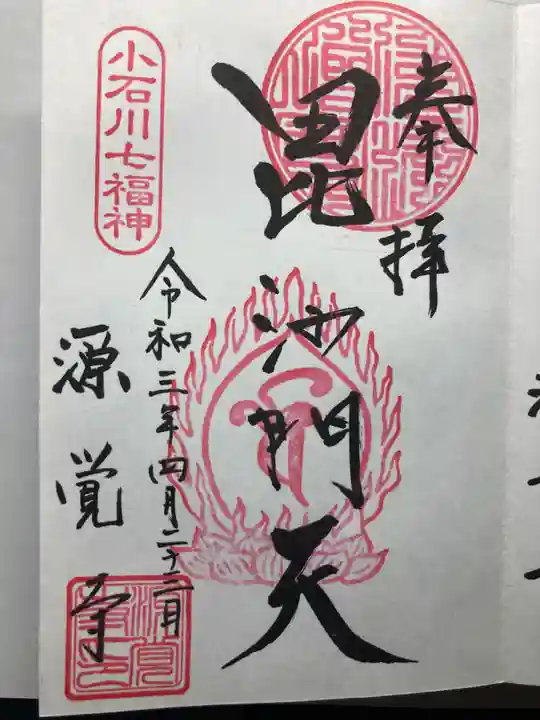 奉拝
毘沙門天
小石川七福神
令和三年四月二十二日
源覚寺